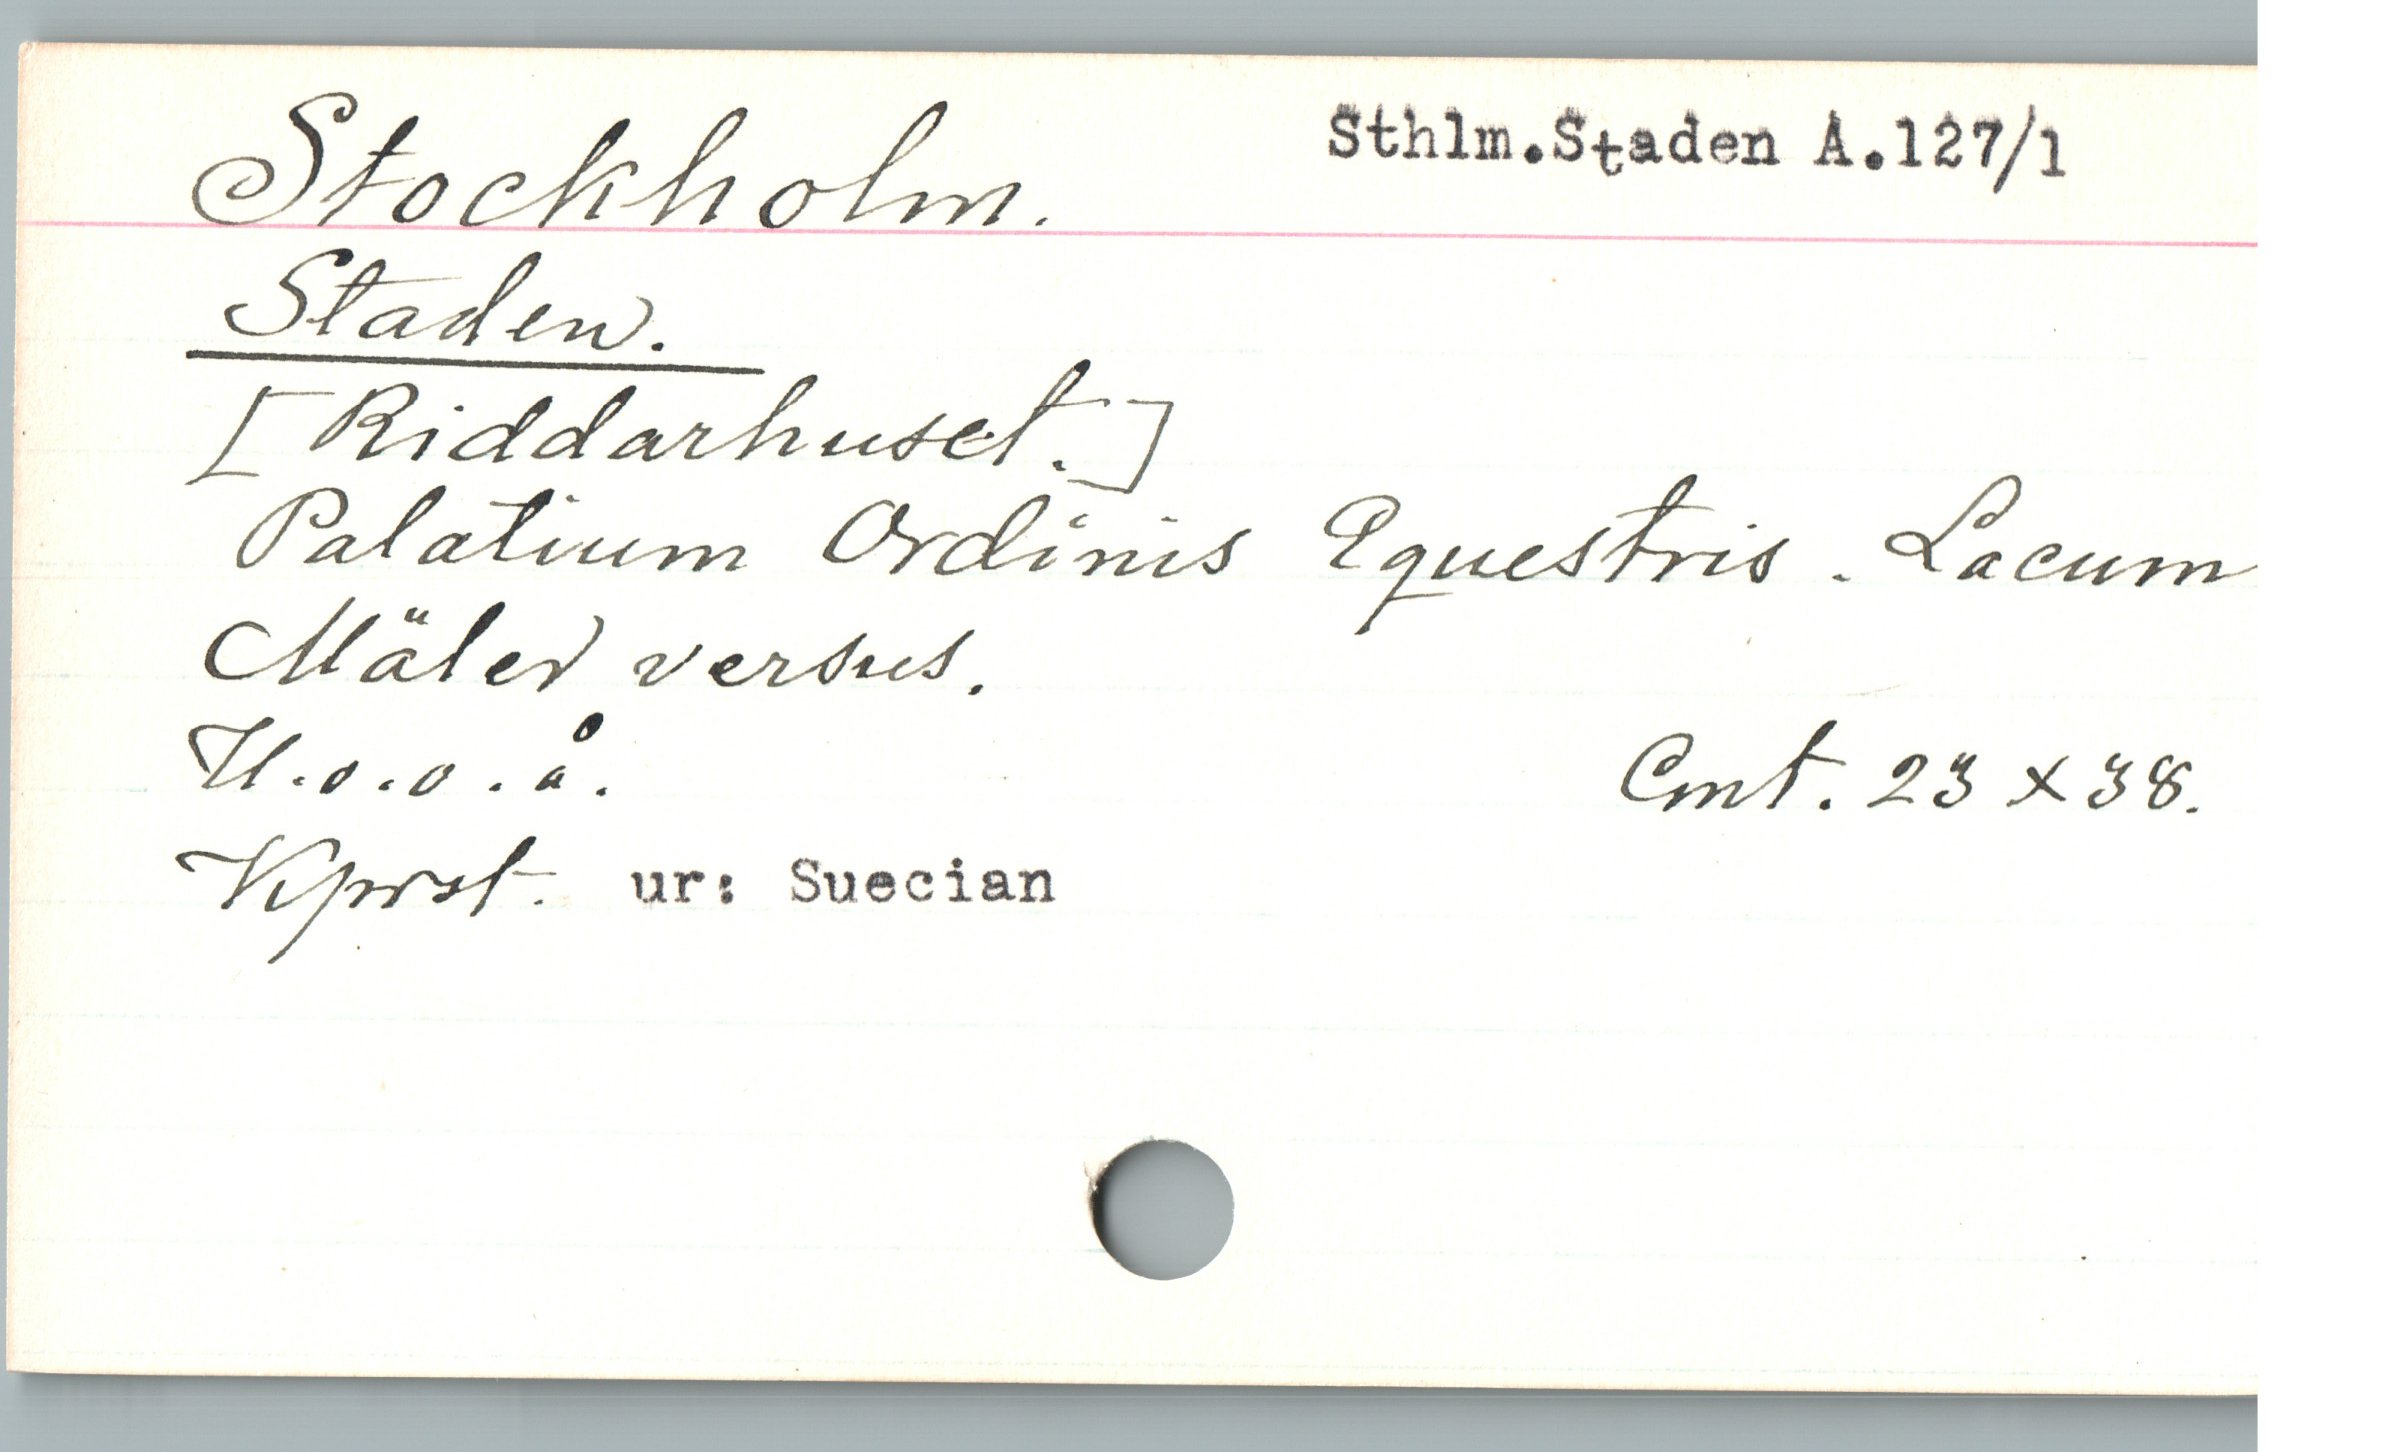 Stockholm.
Sthlm.Staden A.127/1
Staden.
[Riddarhuset.]
Palatium Ordinis Equestris. Lacum
Mäler versus.
U.o.o.å.
Cmt. 23 x 38.
Kprst. ur: Suecian